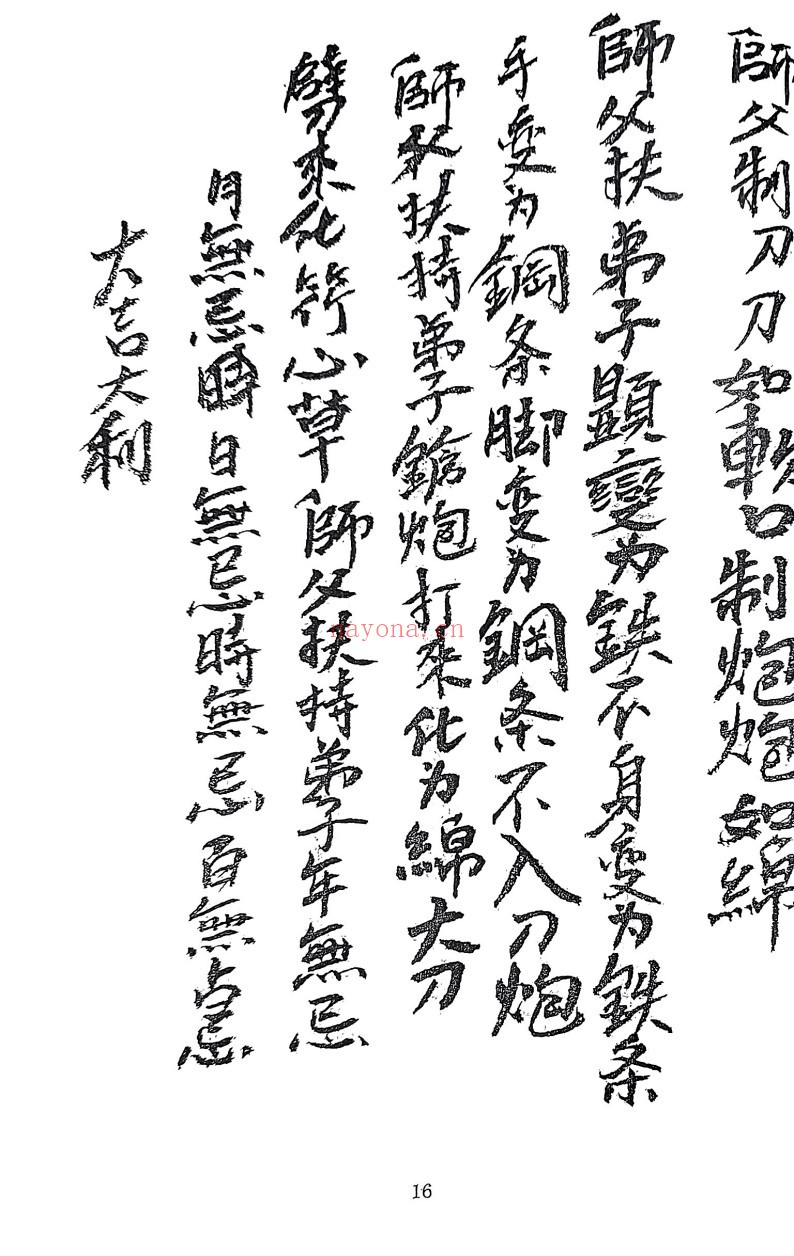 師父制刀刀如軟口制炮炮如綿
師父扶弟子顕變为鉄不身变为鉄条
手变为鋼条脚变为鋼条不入刀炮
師父扶持弟子鎗炮打來化为綿大刀
劈來化符心草師父扶持弟子年無忌
月無忌時日無忌時無忌百無占忌
大吉大利
nayona.cn
16